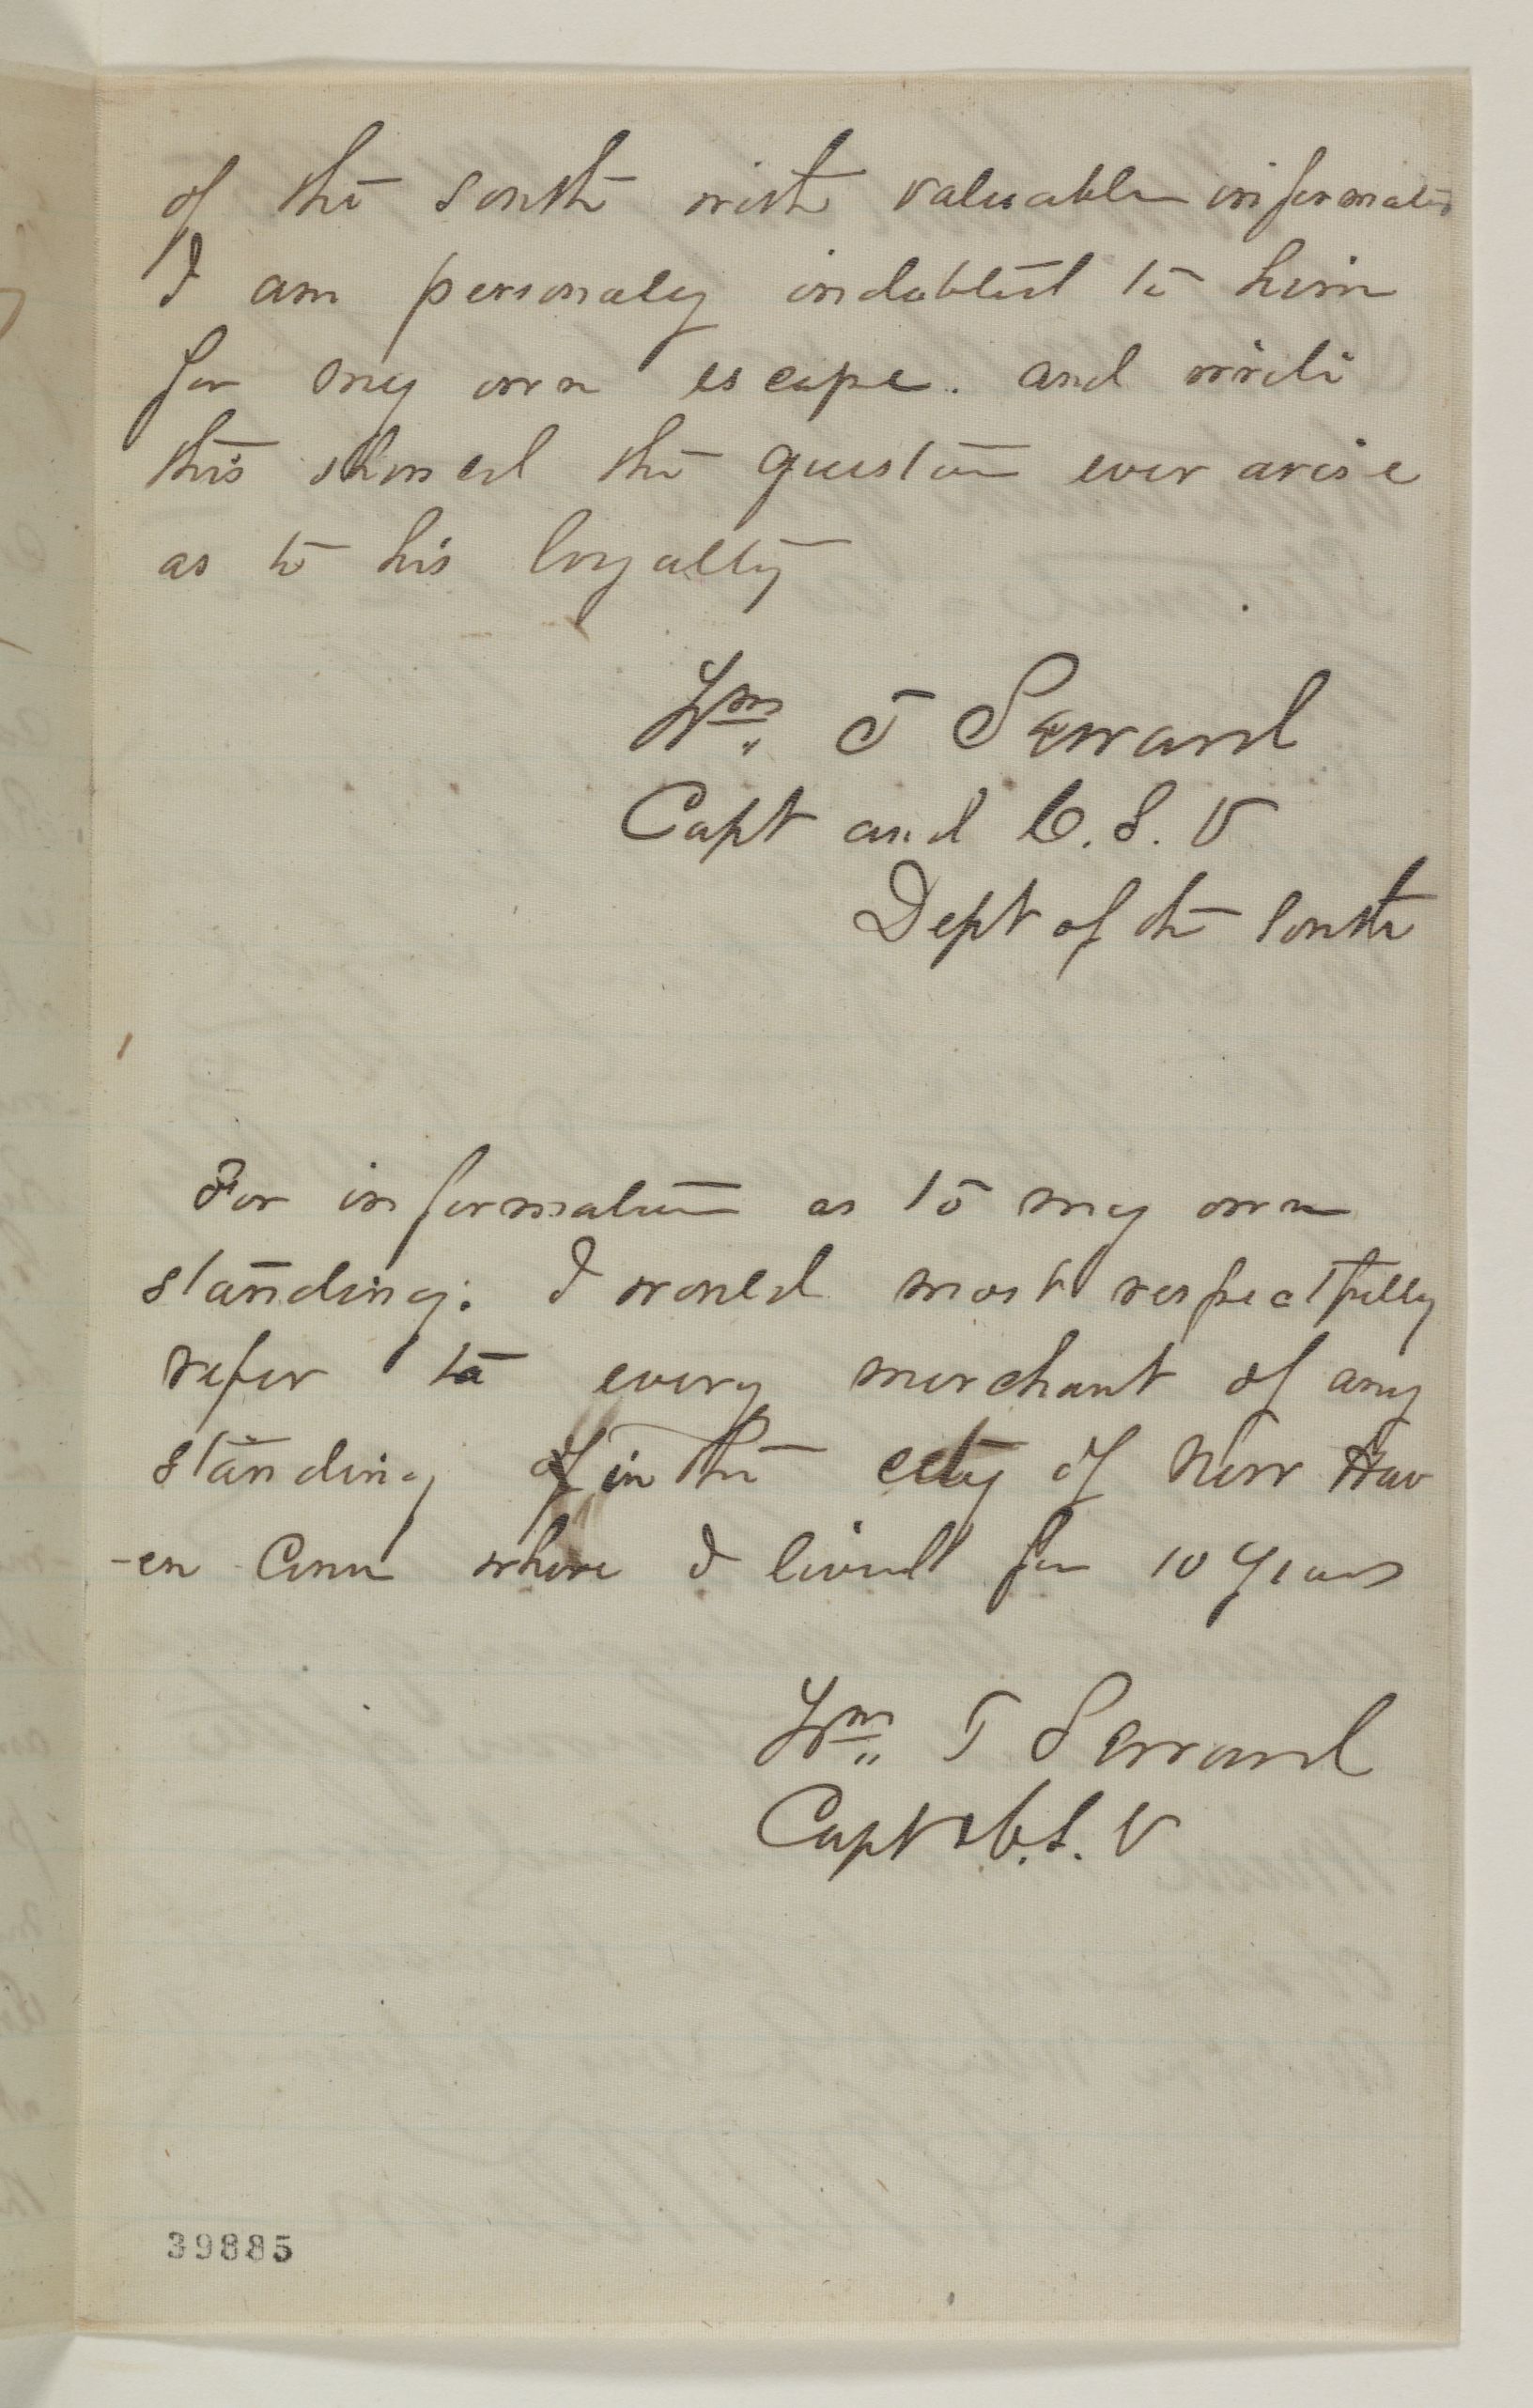 of the south with valuable information
I am personaly indebted to him
for my own escape. and write
this should the question ever arise
as to his loyalty
Wm. T Seward
Capt and C. S. V
Dept of the South
For information as to my own
standing. I would most respectfully
refer to every merchant of any
standing of in the city of New Hav
-en Conn where I lived for 10 years
Wm. T Seward
Capt & C. S. V
39885